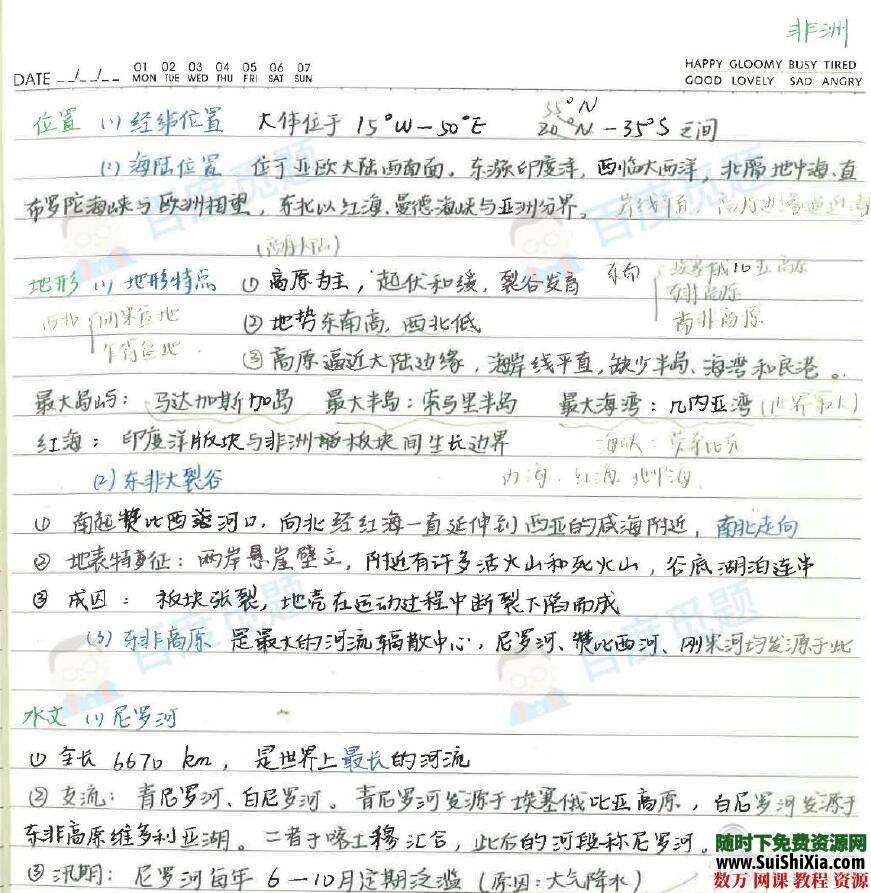 非洲
DATE __/__/__ 01 MON 02 TUE 03 WED 04 THU 05 FRI 06 SAT 07 SUN HAPPY GLOOMY BUSY TIRED
GOOD LOVELY SAD ANGRY
35°N
位置 (1) 经纬位置 大体位于 15°W-50°E 20°N-35°S之间
(2) 海陆位置 位于亚欧大陆西南面。东濒印度洋,西临大西洋,北隔地中海、直
布罗陀海峡与欧洲相望,东北以红海、曼德海峡与亚洲分界。 岸线平直,
(高原大陆)
地形 (1) 地形特点 ① 高原为主,起伏和缓,裂谷发育 东南 埃塞俄比亚高原
东非高原
西北 刚果盆地 ② 地势东南高,西北低 南非高原
乍得盆地 ③ 高原逼近大陆边缘,海岸线平直,缺少半岛、海湾和良港。
最大岛屿:马达加斯加岛 最大半岛:索马里半岛 最大海湾:几内亚湾(世界最大)
红海:印度洋版块与非洲板块间生长边界 海峡:莫桑比克
(2) 东非大裂谷 内海:红海、地中海
① 南起赞比西河口,向北经红海一直延伸到西亚的咸海附近,南北走向
② 地表特征:两岸悬崖壁立,附近有许多活火山和死火山,谷底湖泊连串
③ 成因:板块张裂,地壳在运动过程中断裂下陷而成
(3) 东非高原 是最大的河流辐散中心,尼罗河、赞比西河、刚果河均发源于此
水文 (1) 尼罗河
① 全长 6670 km,是世界上最长的河流
② 支流:青尼罗河、白尼罗河。青尼罗河发源于埃塞俄比亚高原,白尼罗河发源于
东非高原维多利亚湖。二者于喀土穆汇合,此后的河段称尼罗河。
③ 汛期:尼罗河每年 6-10月定期泛滥(原因:大气降水)
百度觅题
百度觅题
百度觅题
百度觅题
随时下免费资源网
www.SuiShiXia.com
数万 网课 教程 资源